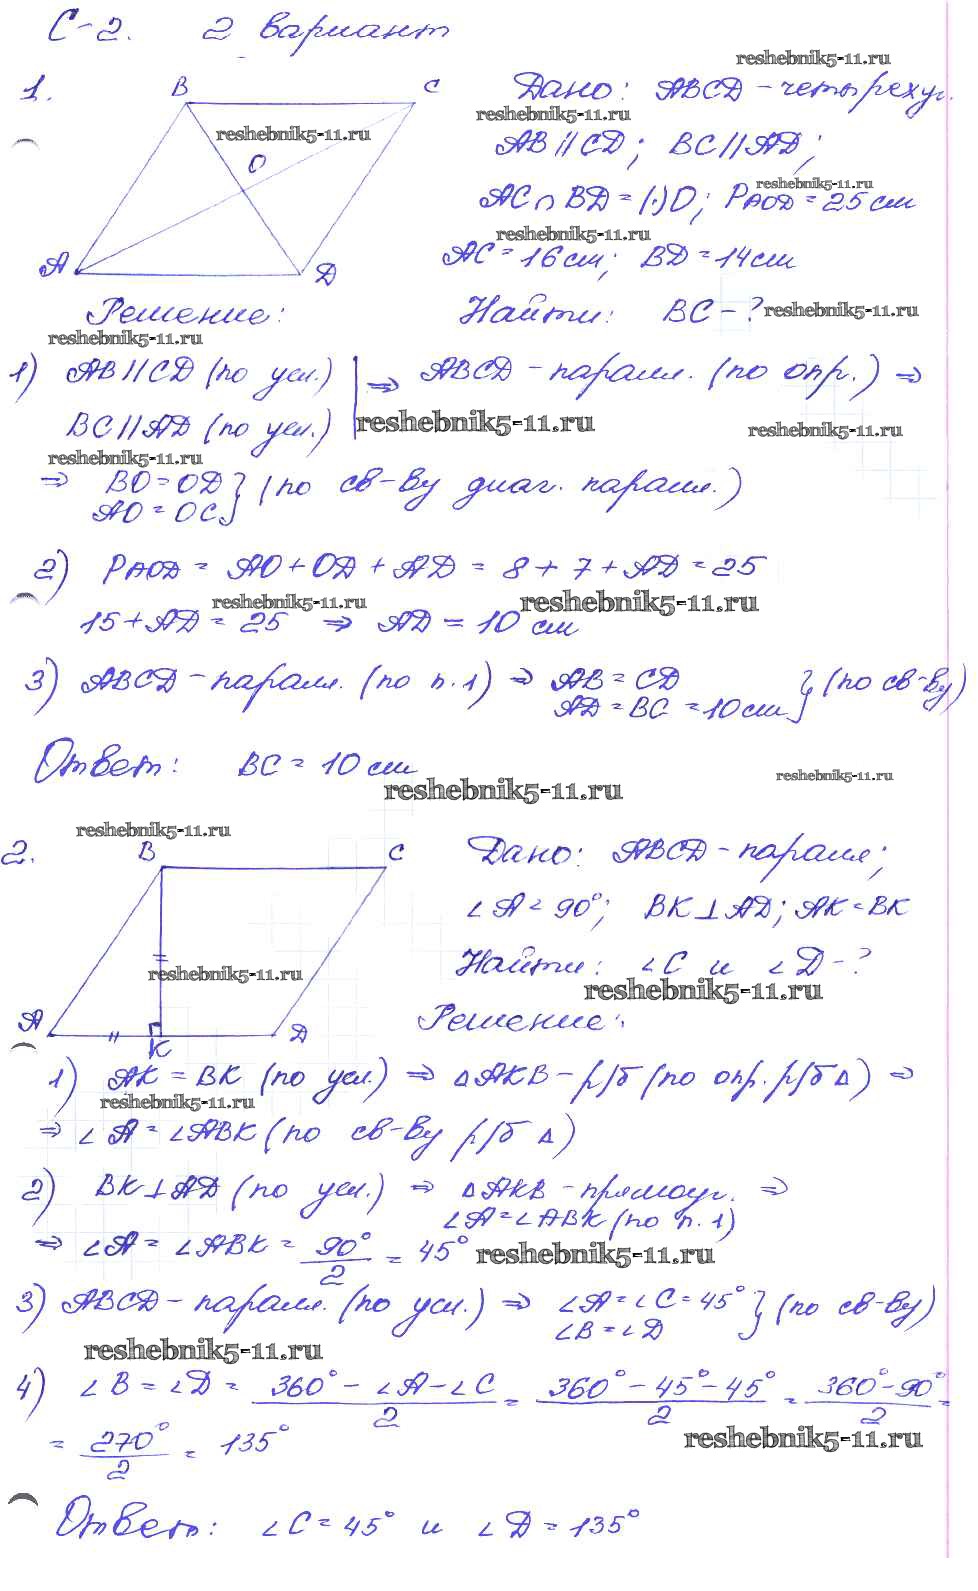 С-2. 2 вариант
reshebnik5-11.ru
1.
B C
A D
O
reshebnik5-11.ru
Дано: ABCD - четырехуг.
reshebnik5-11.ru
AB || CD; BC || AD;
reshebnik5-11.ru
AC ∩ BD = (·) O; P AOD = 25 см
reshebnik5-11.ru
AC = 16 см; BD = 14 см
Решение: Найти: BC - ?
reshebnik5-11.ru
reshebnik5-11.ru
1) AB || CD (по усл.) | ⇒ ABCD - паралл. (по опр.) ⇒
BC || AD (по усл.)
reshebnik5-11.ru
reshebnik5-11.ru
reshebnik5-11.ru
⇒ BO = OD } (по св-ву диаг. паралл.)
AO = OC
2) P AOD = AO + OD + AD = 8 + 7 + AD = 25
reshebnik5-11.ru
reshebnik5-11.ru
15 + AD = 25 ⇒ AD = 10 см
3) ABCD - паралл. (по п.1) ⇒ AB = CD } (по св-ву)
AD = BC = 10 см
Ответ: BC = 10 см
reshebnik5-11.ru
reshebnik5-11.ru
reshebnik5-11.ru
2.
B C
A K D
reshebnik5-11.ru
Дано: ABCD - паралл;
∠A = 90°; BK ⊥ AD; AK = BK
Найти: ∠C и ∠D - ?
reshebnik5-11.ru
Решение:
1) AK = BK (по усл.) ⇒ △AKB - р/б (по опр. р/б △) ⇒
reshebnik5-11.ru
⇒ ∠A = ∠ABK (по св-ву р/б △)
2) BK ⊥ AD (по усл.) ⇒ △AKB - прямоуг. ⇒
∠A = ∠ABK (по п.1)
⇒ ∠A = ∠ABK = 90°/2 = 45°
reshebnik5-11.ru
3) ABCD - паралл. (по усл.) ⇒ ∠A = ∠C = 45° } (по св-ву)
∠B = ∠D
reshebnik5-11.ru
4) ∠B = ∠D = (360° - ∠A - ∠C)/2 = (360° - 45° - 45°)/2 = (360° - 90°)/2 =
= 270°/2 = 135°
reshebnik5-11.ru
Ответ: ∠C = 45° и ∠D = 135°